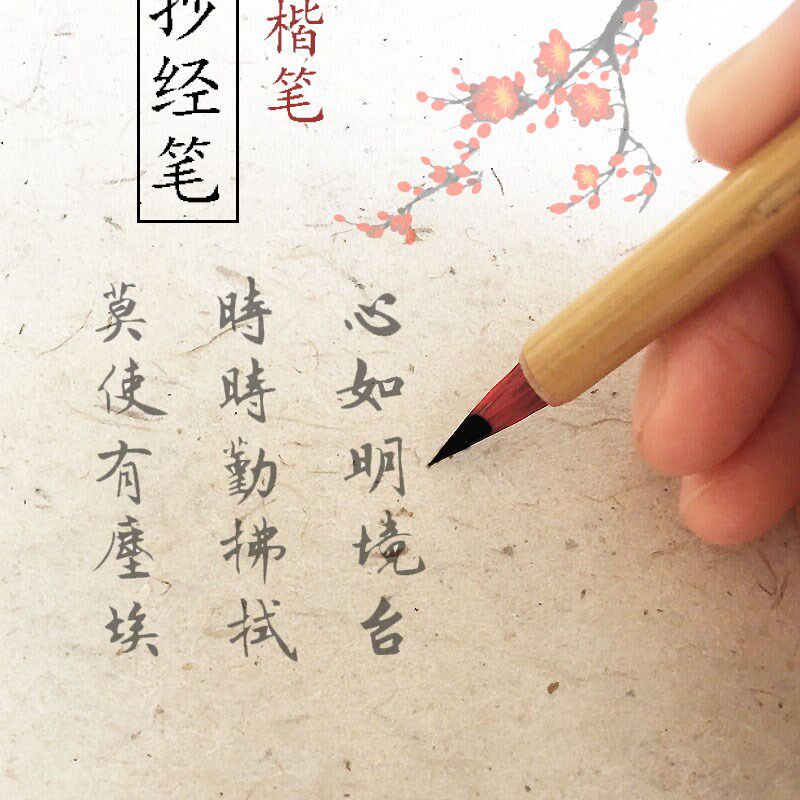 楷笔
抄经笔
心如明境台
時時勤拂拭
莫使有塵埃